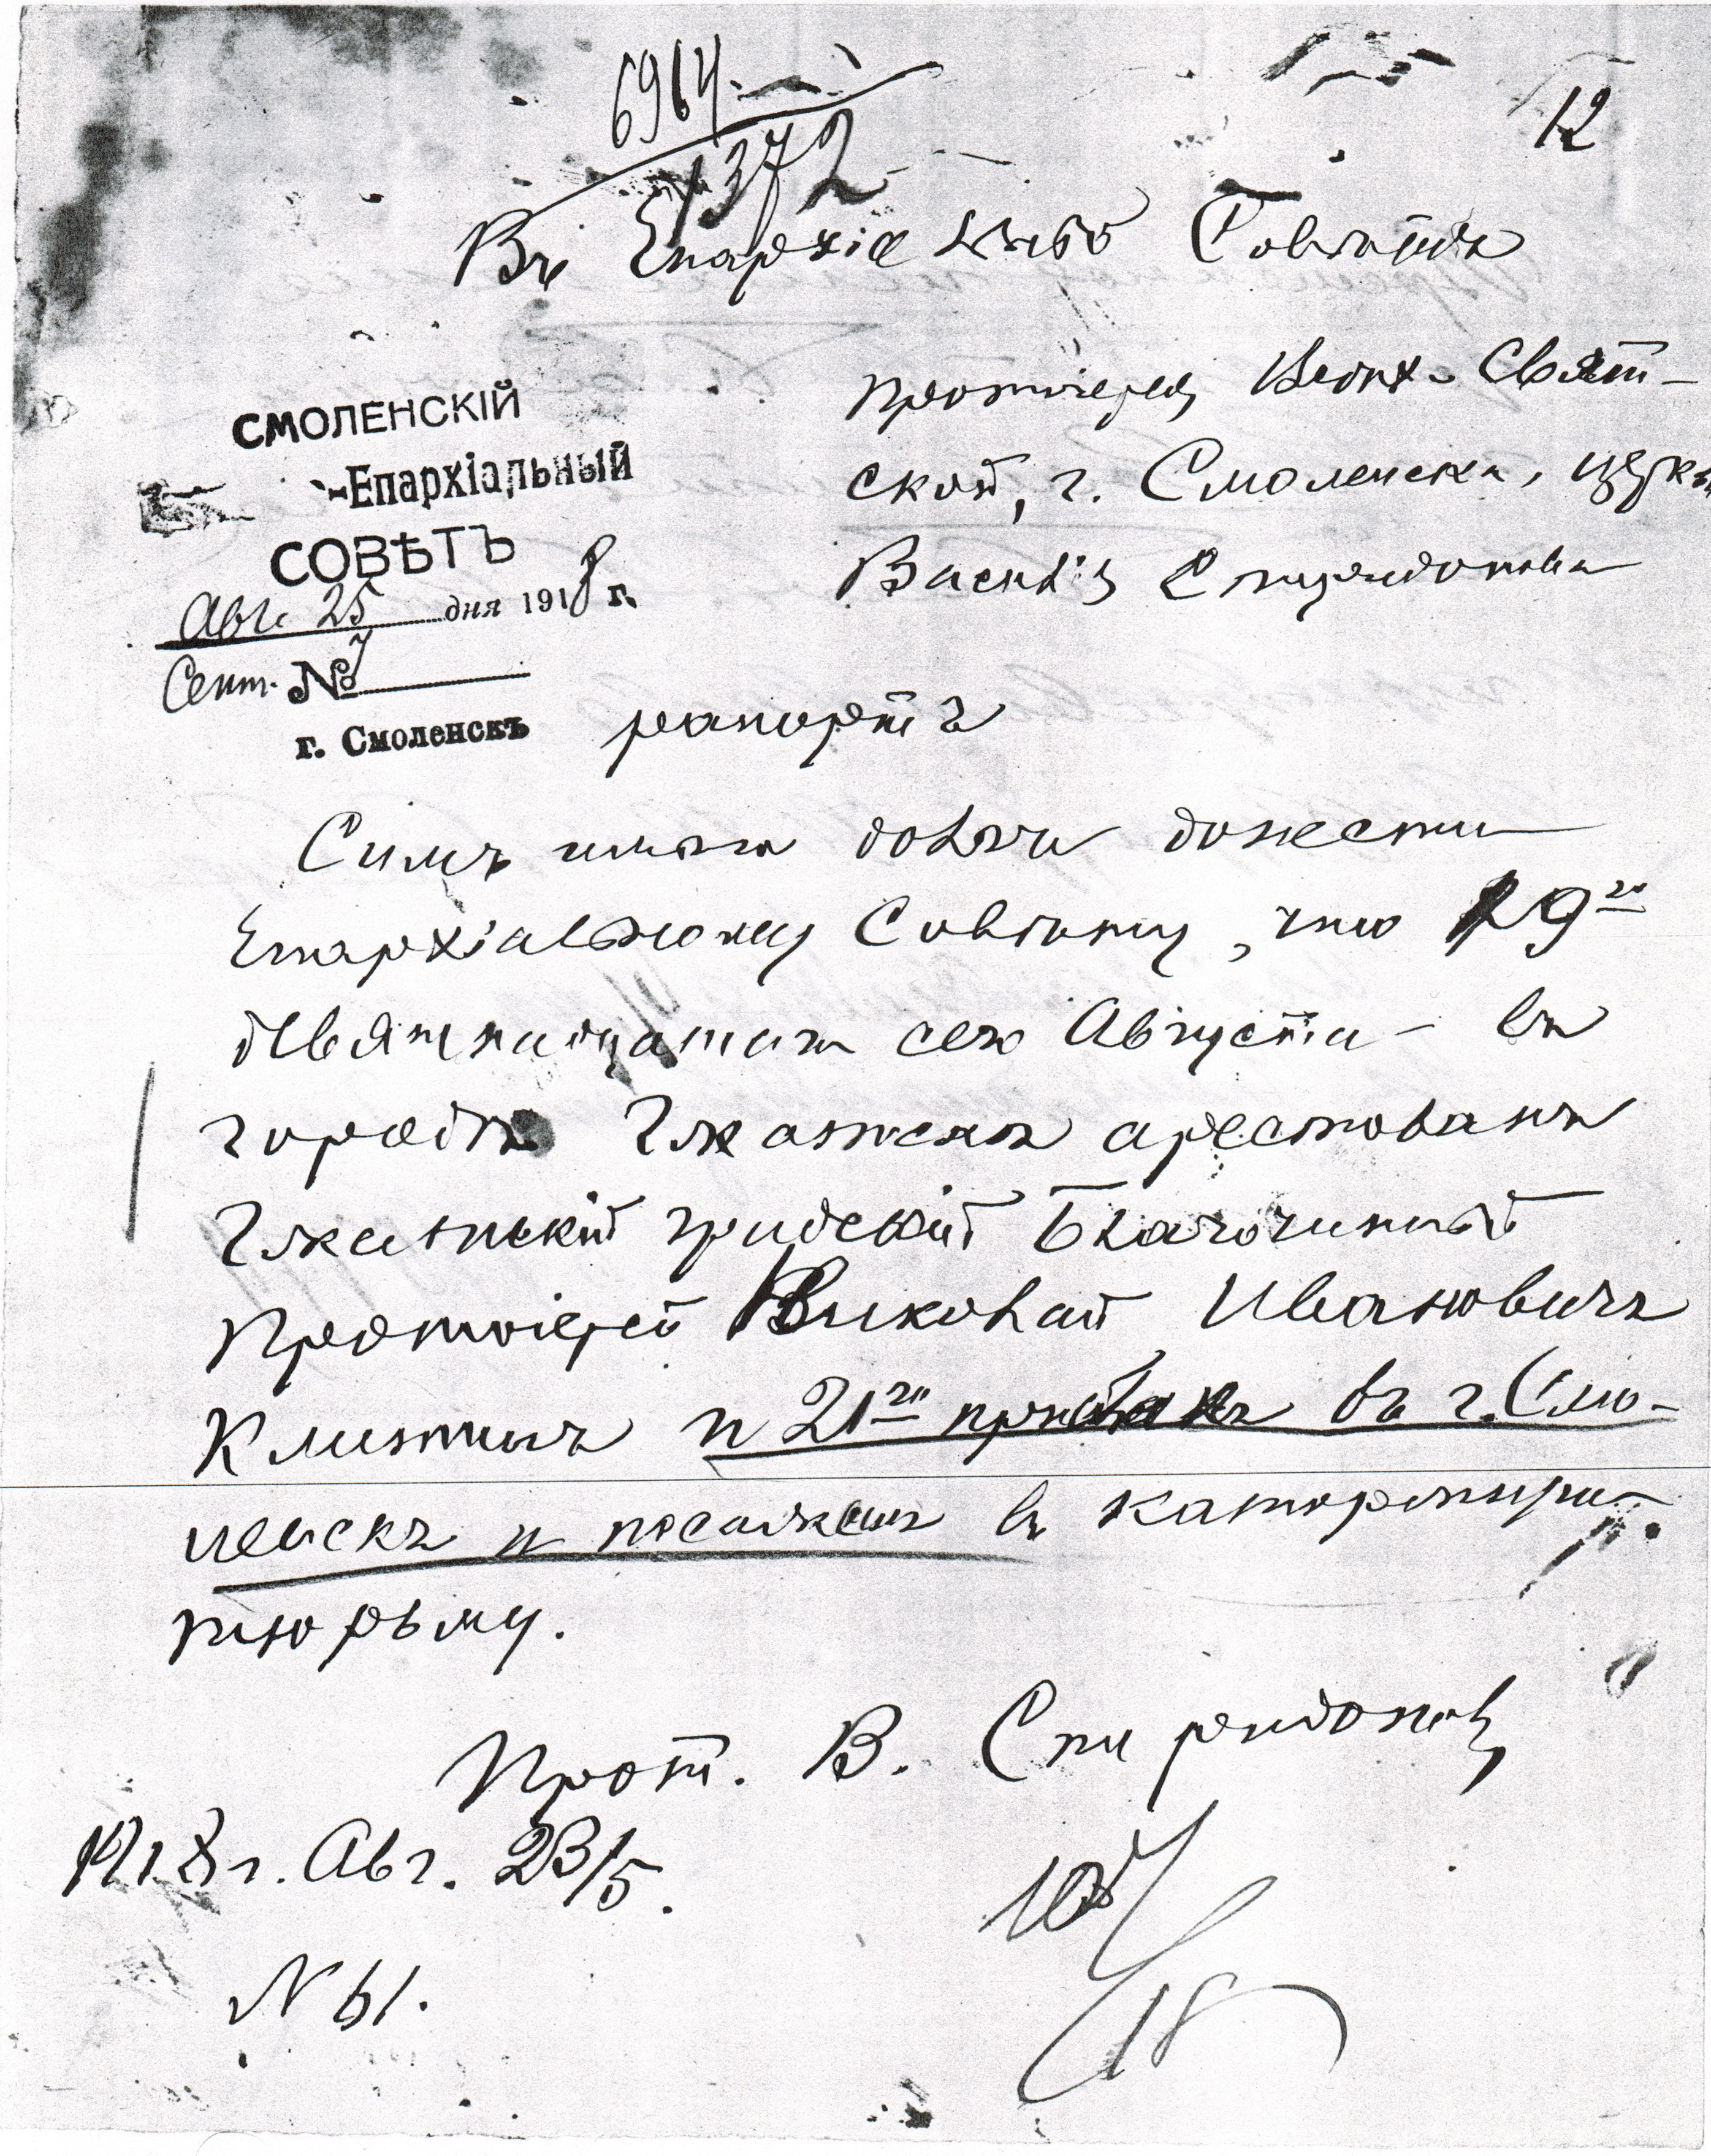 6964
1372
12
Въ Епархіальный Совѣтъ
СМОЛЕНСКІЙ
Епархіальный
СОВѢТЪ
Авг. 25 дня 1918 г.
Сент. 7 №
г. Смоленскъ
протоіерея Верхне-Свят-
ской, г. Смоленска, церкви
Василія Спиридонова
рапортъ
Симъ имѣю долгъ донести
Епархіальному Совѣту, что 19го
девятнадцатаго сего Августа - въ
городѣ Гжатскѣ арестованъ
Гжатскій градскій Благочинный
Протоіерей Николай Ивановичъ
Клитинъ и 21го присланъ въ г. Смо-
ленскъ и посаженъ въ каторжную
тюрьму.
Прот. В. Спиридоновъ
1918 г. Авг. 23/5.
N 61.
18